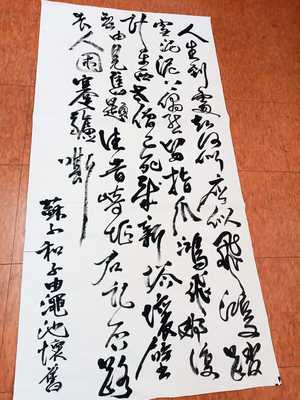 人生到處知何似應似飛鴻踏
雪泥泥上偶然留指爪鴻飛那復
計東西老僧已死成新塔壞壁
無由見舊題往昔崎嶇君記否路
長人困蹇驢嘶
蘇子和子由澠池懷舊